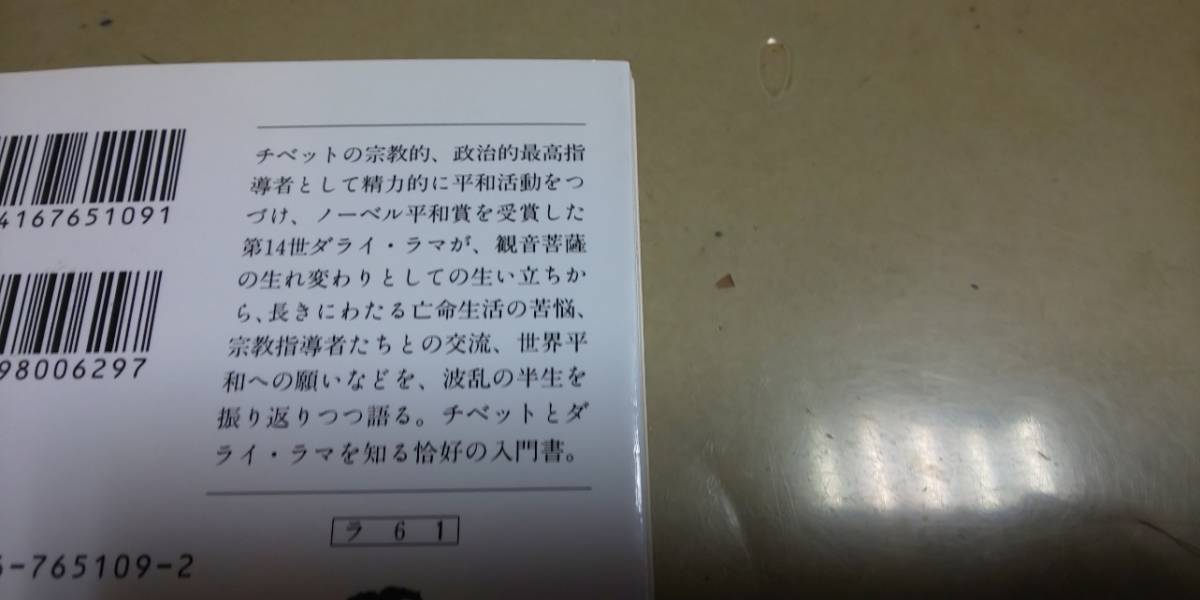 チベットの宗教的、政治的最高指
導者として精力的に平和活動をつ
づけ、ノーベル平和賞を受賞した
第14世ダライ・ラマが、観音菩薩
の生れ変わりとしての生い立ちか
ら、長きにわたる亡命生活の苦悩、
宗教指導者たちとの交流、世界平
和への願いなどを、波乱の半生を
振り返りつつ語る。チベットとダ
ライ・ラマを知る恰好の入門書。
ラ 6 1
4167651091
98006297
-765109-2